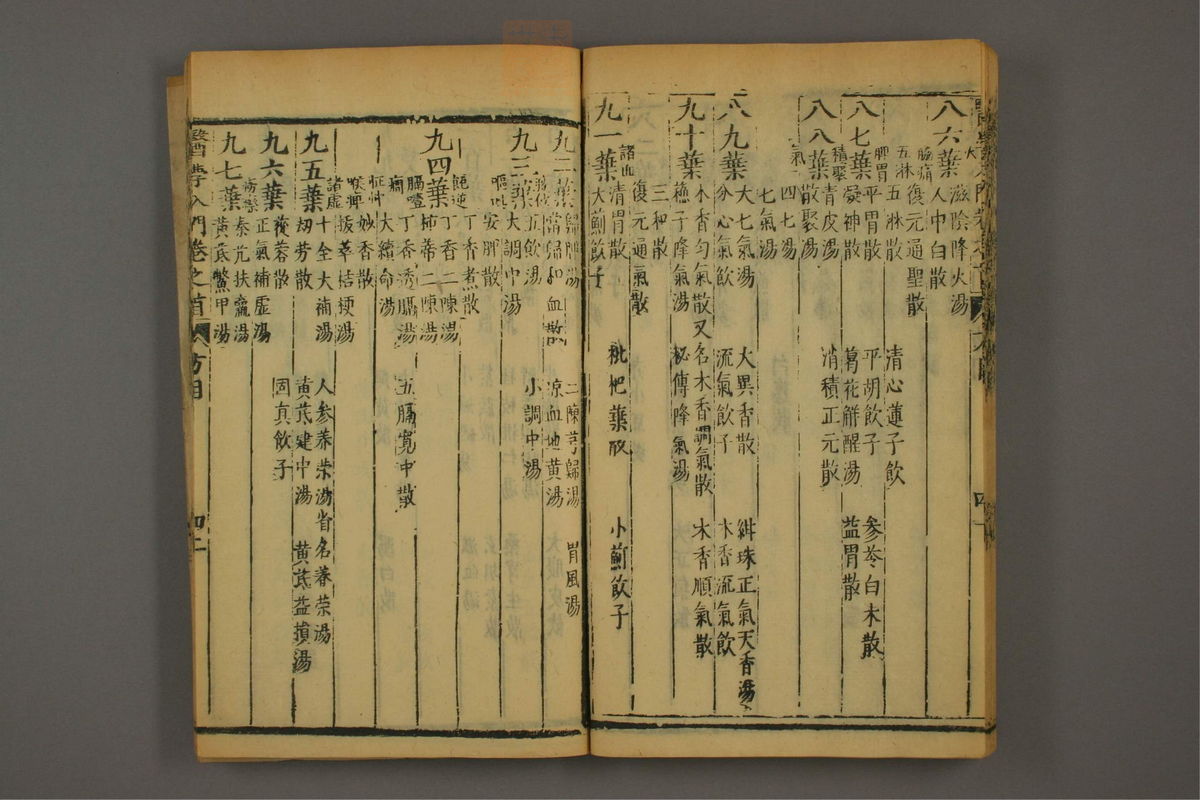 八六葉 滋陰降火湯 清心蓮子飲
人中白散
腦痛 復元通聖散
五淋 五淋散
八七葉 脾胃 平胃散 平胡飲子 參苓白朮散
凝神散 葛花解醒湯 益胃散
積聚 青皮湯 消積正元散
八八葉 散聚湯
氣 四七湯
七氣湯
大七氣湯 大異香散 紺珠正氣天香湯
八九葉 分心氣飲 流氣飲子 木香流氣飲
木香勻氣散又名木香調氣散 木香順氣散
九十葉 蘇子降氣湯 秘傳降氣湯
三和散
復元通氣散
諸血 清胃散 枇杷葉散 小薊飲子
九一葉 大薊飲子
九二葉 歸脾湯 二陳芎歸湯 胃風湯
當歸和血散 涼血地黃湯
五飲湯 小調中湯
九三葉 大調中湯
嘔吐 安脾散
丁香煮散
呃逆 丁香二陳湯
九四葉 柿蒂二陳湯
膈噎 丁香透膈湯 五膈寬中散
大續命湯
怔忡 妙香散
喉痺 拔萃桔梗湯
諸虛 十全大補湯 人參養榮湯省名養榮湯
九五葉 劫勞散 黃芪建中湯 黃芪益損湯
蓯蓉散 固真飲子
九六葉 正氣補虛湯
癆瘵 秦艽扶羸湯
九七葉 黃芪鱉甲湯
醫學入門卷之首 方目 四二